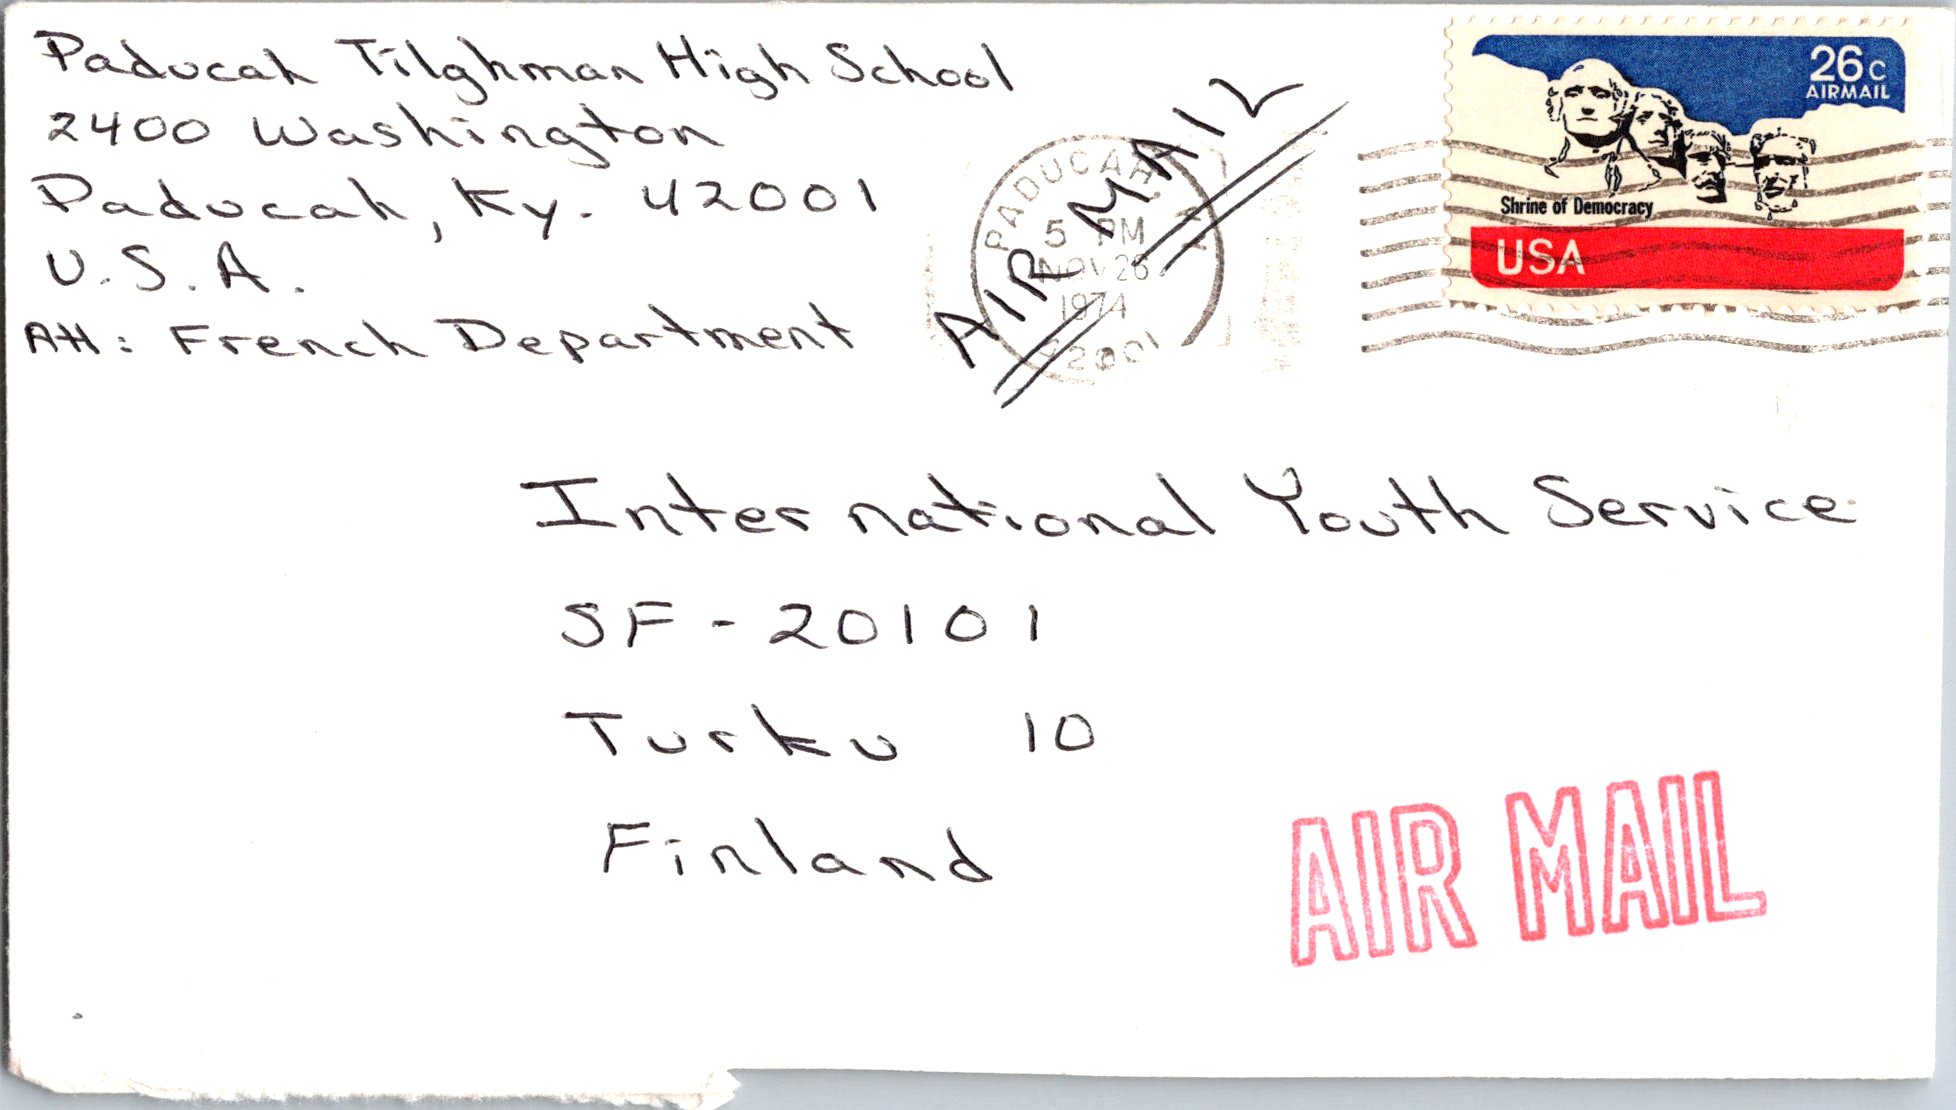 Paducah Tilghman High School
2400 Washington
Paducah, Ky. 42001
U.S.A.
Att: French Department
AIR MAIL
PADUCAH, KY
5 PM
NOV 26
1974
42001
26c
AIRMAIL
Shrine of Democracy
USA
International Youth Service
SF-20101
Turku 10
Finland
AIR MAIL